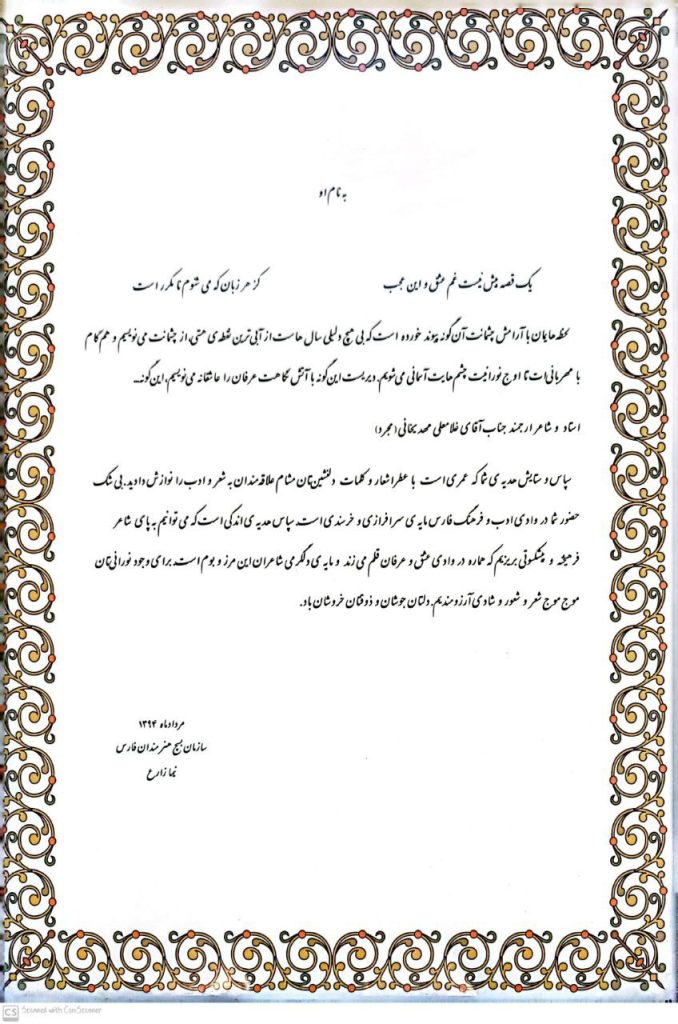 به نام او
یک قصه بیش نیست غم عشق و این عجب کز هر زبان که می شنوم نا مکرر است
لحظه هایمان با آرامش چشمانت آن گونه پیوند خورده است که بی هیچ دلیلی سال هاست از آبی ترین نقطه ی هستی، از چشمانت می نویسیم و هم گام
با مهربانی ات تا اوج نورانیت چشم هایت آسمانی می شویم. دیریست این گونه با آتش نگاهت عرفان را عاشقانه می نویسیم، این گونه...
استاد و شاعر ارجمند جناب آقای غلامعلی مهدیخانی (مجرد)
سپاس و ستایش هدیه ی شما که عمری است با عطر اشعار و کلمات دلنشین تان مشام علاقه مندان به شعر و ادب را نوازش دادید. بی شک
حضور شما در وادی ادب و فرهنگ فارس مایه ی سرافرازی و خرسندی است. سپاس هدیه ی اندکی است که می توانیم به پای شاعر
فرهیخته و پیشکسوتی بریزیم که همواره در وادی عشق و عرفان قلم می زند و مایه ی دلگرمی شاعران این مرز و بوم است. برای وجود نورانی تان
موج موج شعر و شعور و شادی آرزومندیم. دلتان جوشان و ذوقتان خروشان باد.
مرداد ماه ۱۳۹۴
سازمان بسیج هنرمندان فارس
نیما زارع
CS Scanned with CamScanner